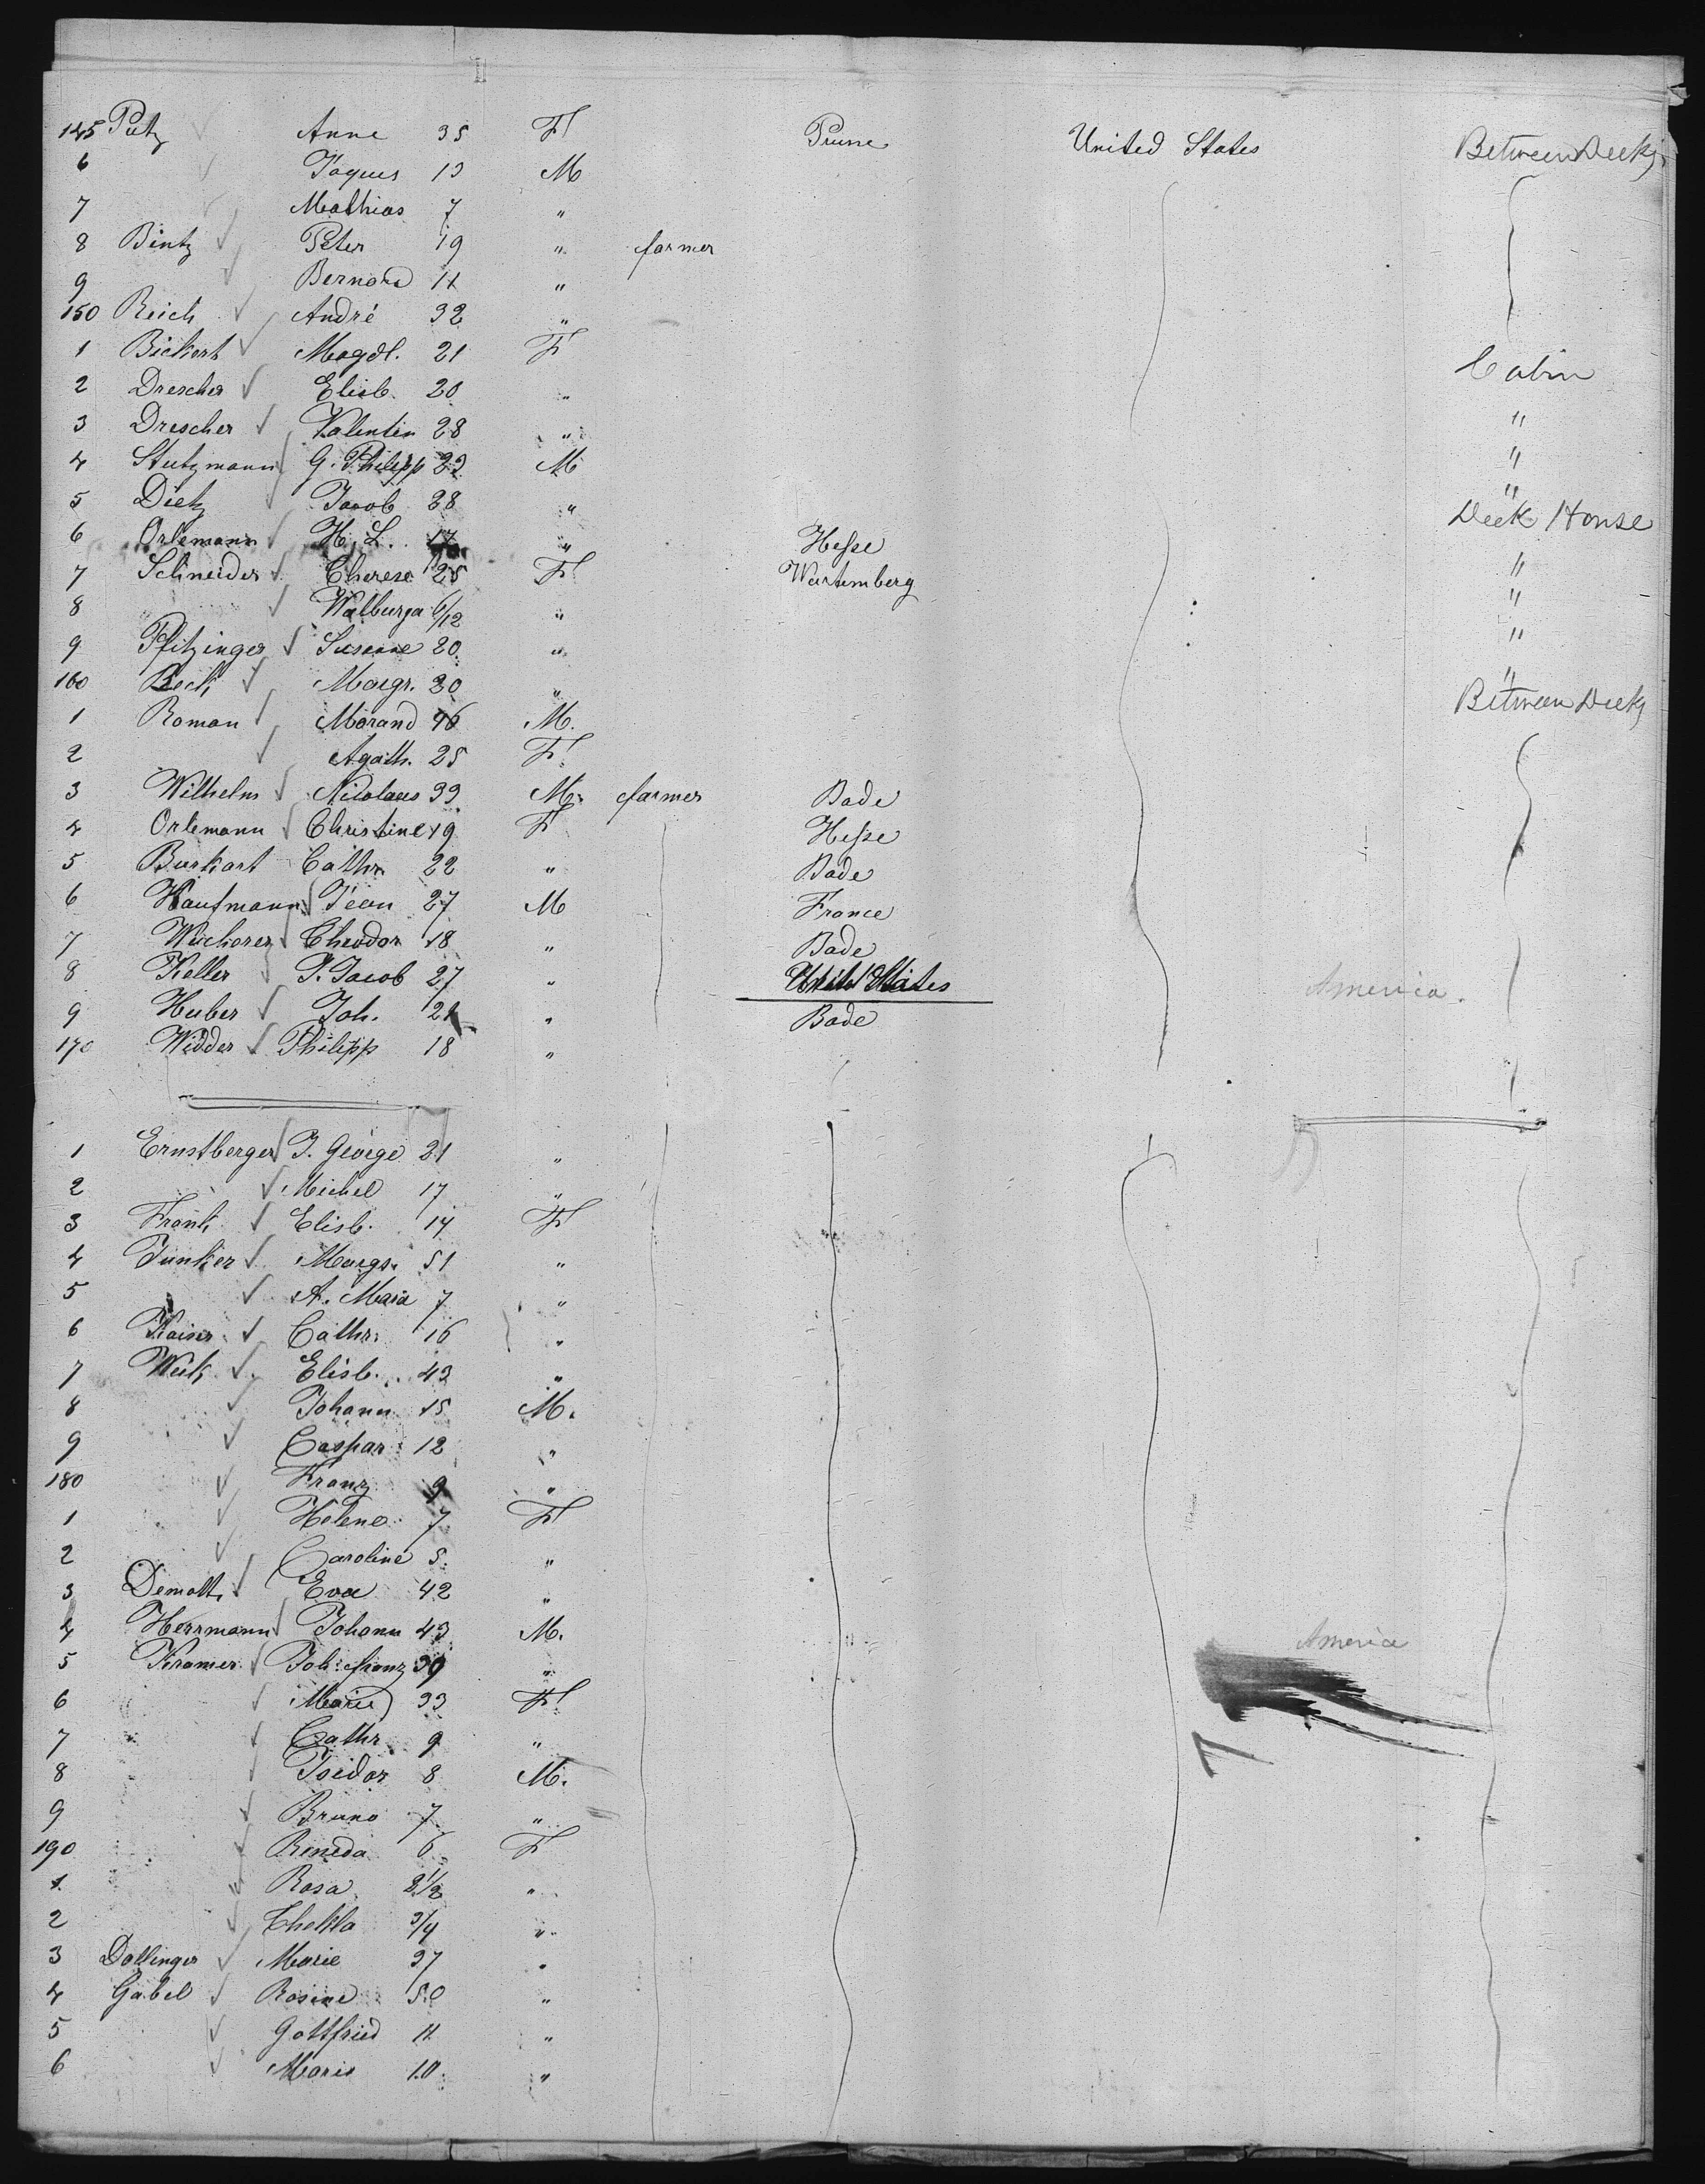 145 Putz Anne 35 F Prusse United States Between Decks
6 Jaques 13 M
7 Mathias 7 "
8 Bintz Peter 19 " farmer
9 Bernard 11 "
150 Reich André 32 "
1 Bickert Magdl. 21 F Cabin
2 Drescher Elisb. 20 "
3 Drescher Valentin 28 " "
4 Stutzmann G. Philipp 23 M "
5 Dietz Jacob 28 " "
6 Orlemann H. L. 17 " Hesse Deck House
7 Schneider Therese 25 F Wurtemberg "
8 Walburga 6/12 " "
9 Pfitzinger Susanne 20 " "
160 Beck Margr. 20 " "
1 Roman Morand 46 M. Between Decks
2 Agath. 25 F
3 Wilhelm Nicolaus 33 M. farmer Bade
4 Orlemann Christine 19 F Hesse
5 Burkart Cathr. 22 " Bade
6 Kaufmann Jean 27 M France
7 Wucherer Theodor 18 " Bade
8 Keller P. Jacob 27 " United States America.
9 Huber Joh. 21 " Bade
170 Widder Philipp 18 "
1 Ernstberger J. George 21 "
2 Michel 17 "
3 Frank Elisb. 14 F
4 Junker Margr. 51 "
5 A. Maria 7 "
6 Kaiser Cathr. 16 "
7 Weik Elisb. 43 "
8 Johann 15 M.
9 Caspar 12 "
180 Franz 9 "
1 Helene 7 F
2 Caroline 5 "
3 Demolt Eva 42 "
4 Herrmann Johann 43 M. America
5 Kramer Joh. Franz 39 "
6 Marie 33 F
7 Cathr. 9 "
8 Isidor 8 M.
9 Bruno 7 "
190 Reneda 6 F
1 Rosa 2 1/2 "
2 Thekla 3/4 "
3 Dollinger Marie 37 "
4 Gabel Rosine 50 "
5 Gottfried 11 "
6 Marie 10 "